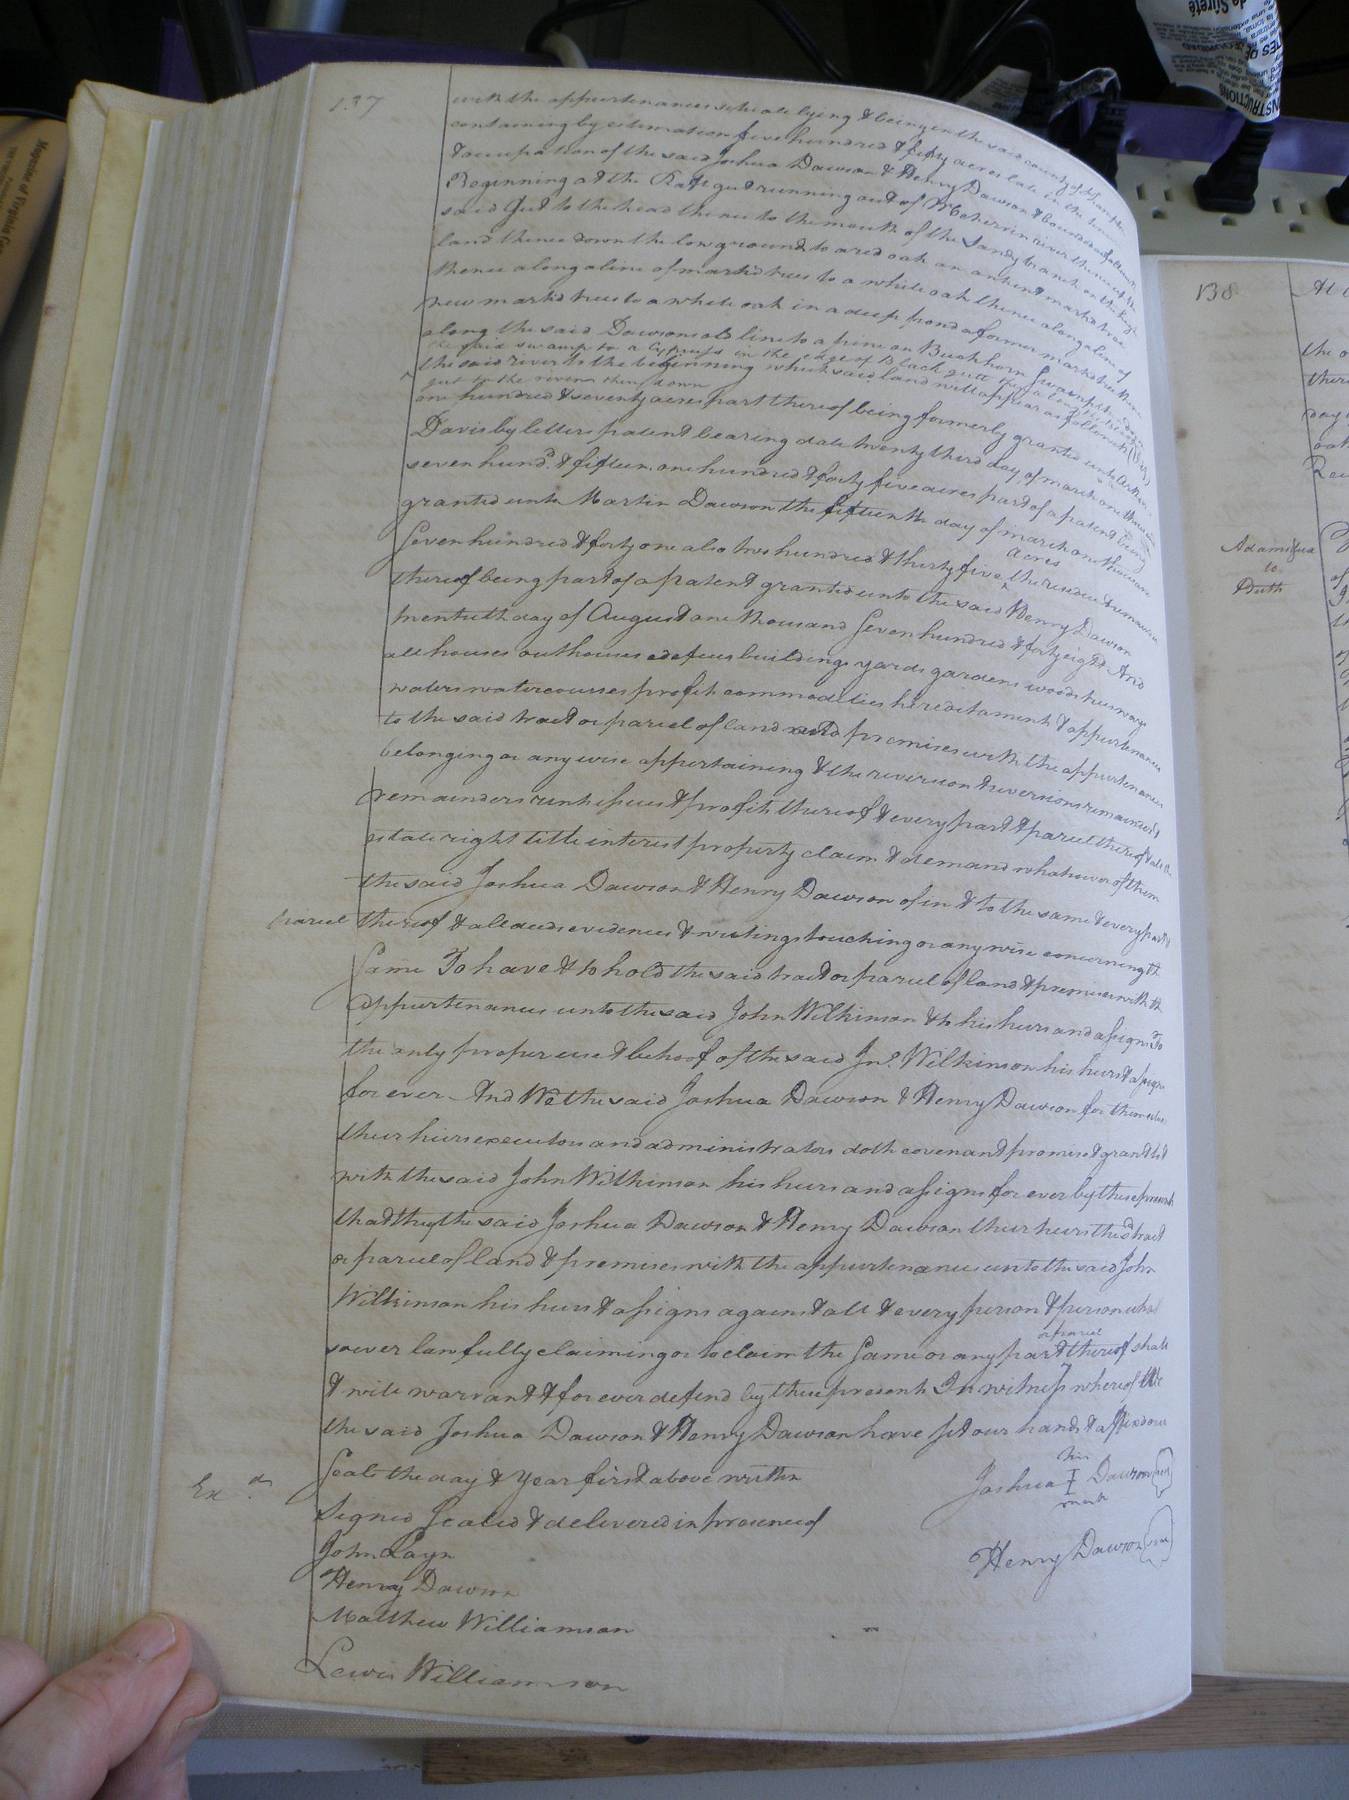 137
with the appurtenances scituate lying & being in the said county of
containing by estimation five hundred & fifty acres late in the
& occupation of the said Joshua Dawson & Henry Dawson & bounded as
Beginning at the gut running out of Meherrin river thence up the
said Gut to the head thence to the mouth of the Sandy branch on the high
land thence down the low ground to a red oak an antient markd tree
thence along a line of markd trees to a white oak thence along a line of
new markd trees to a white oak in a deep pond a former markd tree thence
along the said Dawsons old line to a pine on Buckhorn Swamp then down
the said swamp to a Cypress in the edge of Black gutt then along the said
gut to the river then down
the said river to the beginning which said land will appear as followeth
one hundred & seventy acres part thereof being formerly granted unto
Davis by letters patent bearing date twenty third day of march one thousand
seven hundd. & fifteen. one hundred & forty five acres part of a patent being
granted unto Martin Dawson the fifteenth day of march one thousand
Seven hundred & forty one also two hundred & thirty five acres the residue & remainder
thereof being part of a patent granted unto the said Henry Dawson
twentieth day of August one thousand Seven hundred & forty eight And
all houses outhouses edefices buildings yards gardens woods ways
waters watercourses profits commodities hereditaments & appurtenances
to the said tract or parcel of land and premises with the appurtenances
belonging or any wise appertaining & the revercon & reversions remainder &
remainders rents issues & profits thereof & every part & parcel thereof & also
estate right title interest property claim & demand whatsoever of them
the said Joshua Dawson & Henry Dawson of in & to the same & every part &
parcel thereof & all deeds evidences & writings touching or any wise concerning the
Same To have & to hold the said tract or parcel of land & premises with the
appurtenances unto the said John Wilkinson & to his heirs and assigns To
the only proper use & behoof of the said Jno. Wilkinson his heirs & assigns
for ever And We the said Joshua Dawson & Henry Dawson for themselves
their heirs executors and administrators doth covenant promise & grant to &
with the said John Wilkinson his heirs and assigns for ever by these presents
that they the said Joshua Dawson & Henry Dawson their heirs the sd. tract
or parcel of land & premises with the appurtenances unto the said John
Wilkinson his heirs & assigns against all & every person & persons what
soever lawfully claiming or to claim the Same or any part or parcel thereof shall
& will warrant & for ever defend by these presents In witness whereof We
the said Joshua Dawson & Henry Dawson have set our hands & affixed our
Seals the day & year first above written
Joshua his I mark Dawson seal
Exd.
Signed Sealed & delivered in presence of
Henry Dawson seal
John Layn
Henry Dawson
Matthew Williamson
Lewis Williamson
138
Adams
to
Duth
Magazine of Virginia
INSTRUCTIONS
de Sûreté